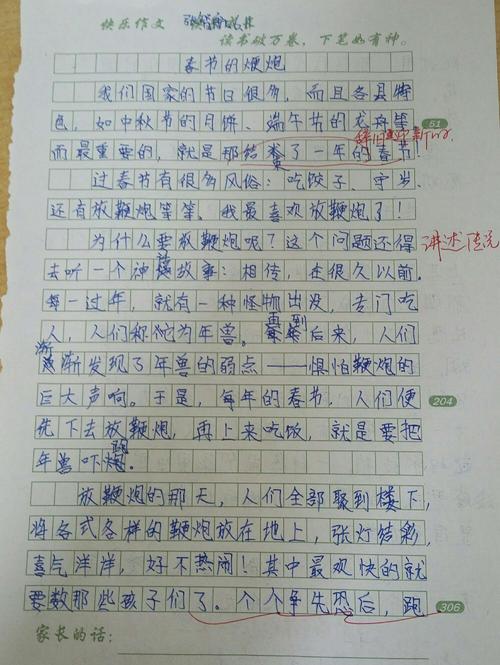 快乐作文
读书破万卷,下笔如有神。
春节的鞭炮
我们国家的节日很多,而且各具特
色,如中秋节的月饼、端午节的龙舟等
51
而最重要的,就是那结束了一年的春节!
辞旧迎新
过春节有很多风俗:吃饺子、守岁、
还有放鞭炮等等。我最喜欢放鞭炮了!
为什么要放鞭炮呢?这个问题还得
讲述传说
去听一个神话故事:相传,在很久以前,
每一过年,就有一种怪物出没,专门吃
人,人们称它为年兽。再到后来,人们
渐渐发现了年兽的弱点——惧怕鞭炮的
巨大声响。于是,每年的春节,人们便
204
先下去放鞭炮,再上来吃饭,就是要把
年兽吓跑。
放鞭炮的那天,人们全部聚到楼下,
将各式各样的鞭炮放在地上,张灯结彩,
喜气洋洋,好不热闹!其中最欢快的就
要数那些孩子们了。个个争先恐后,跑
306
家长的话: